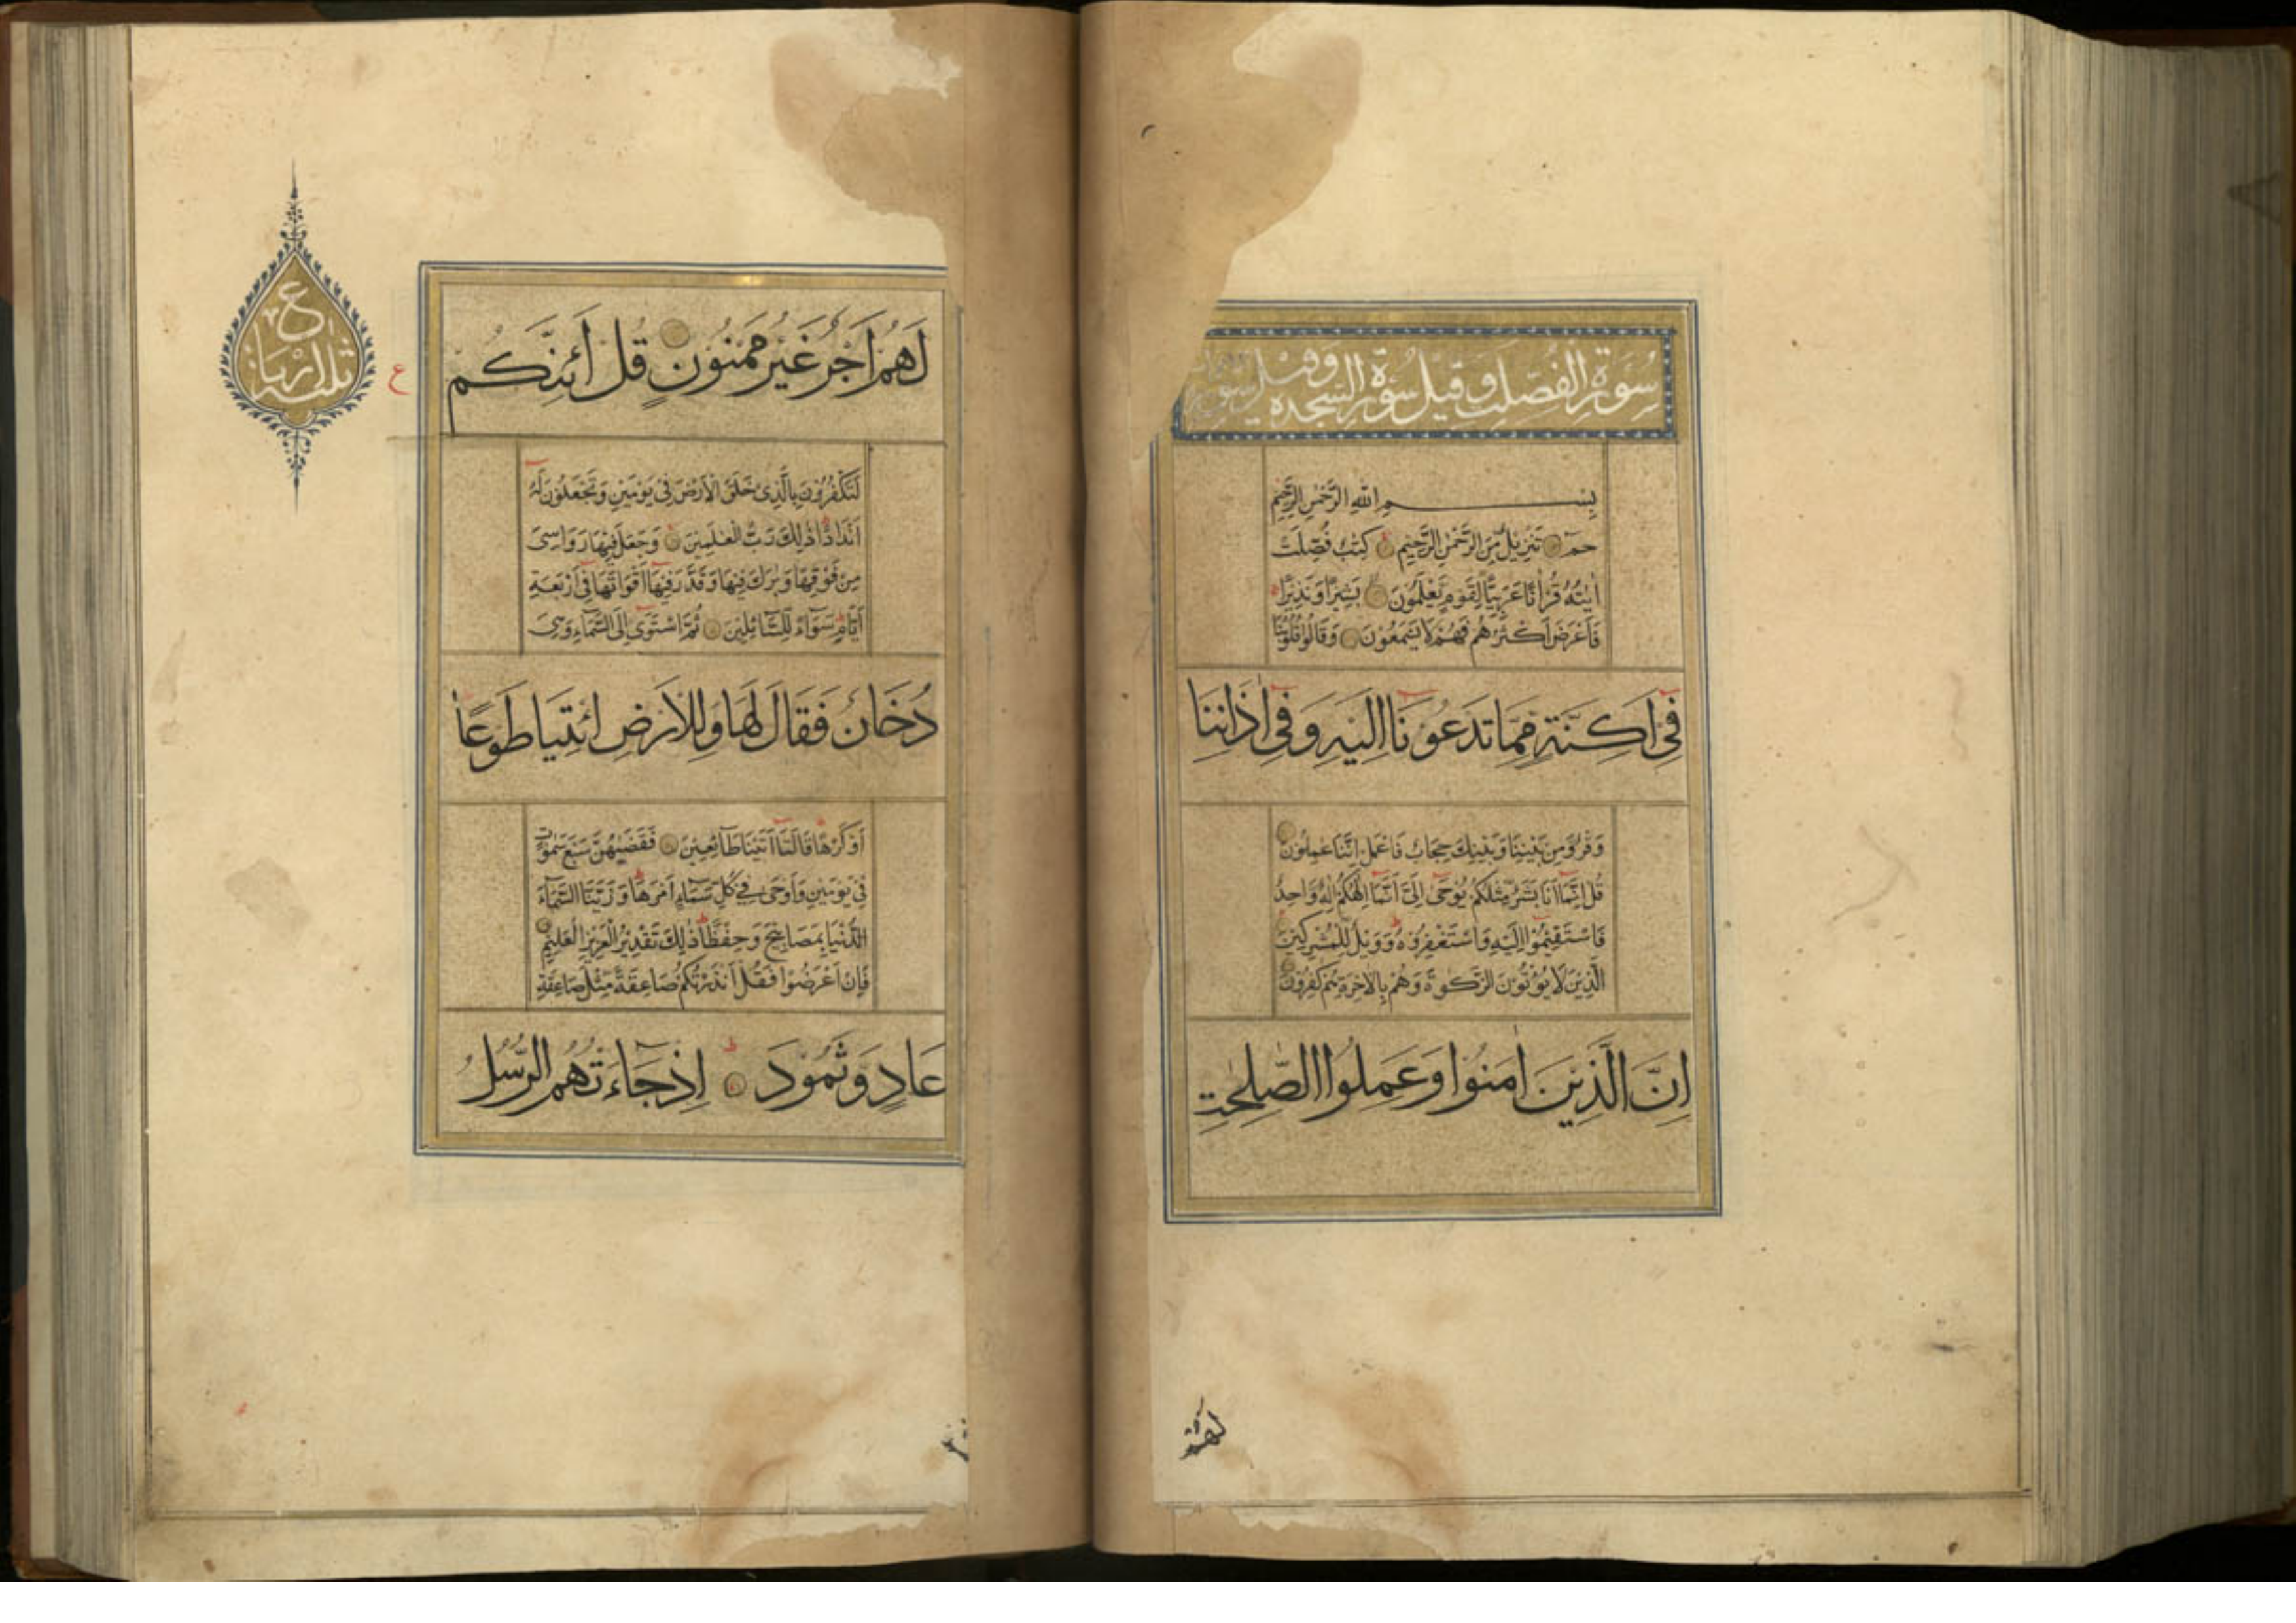 سُورَةُ الفُصِّلَت وَقِيلَ سُورَةُ السَّجدَه وَقِيلَ سورة
بِسْمِ اللّٰهِ الرَّحْمٰنِ الرَّحِيْمِ
حٰمٓ تَنْزِيْلٌ مِّنَ الرَّحْمٰنِ الرَّحِيْمِ كِتٰبٌ فُصِّلَتْ
اٰيٰتُهٗ قُرْاٰنًا عَرَبِيًّا لِّقَوْمٍ يَّعْلَمُوْنَ بَشِيْرًا وَّنَذِيْرًا ۚ
فَاَعْرَضَ اَكْثَرُهُمْ فَهُمْ لَا يَسْمَعُوْنَ وَقَالُوْا قُلُوْبُنَا
فِيْٓ اَكِنَّةٍ مِّمَّا تَدْعُوْنَآ اِلَيْهِ وَفِيْٓ اٰذَانِنَا
وَقْرٌ وَّمِنْ بَيْنِنَا وَبَيْنِكَ حِجَابٌ فَاعْمَلْ اِنَّنَا عٰمِلُوْنَ
قُلْ اِنَّمَآ اَنَا بَشَرٌ مِّثْلُكُمْ يُوْحٰٓى اِلَيَّ اَنَّمَآ اِلٰهُكُمْ اِلٰهٌ وَّاحِدٌ
فَاسْتَقِيْمُوْٓا اِلَيْهِ وَاسْتَغْفِرُوْهُ ط وَوَيْلٌ لِّلْمُشْرِكِيْنَ
الَّذِيْنَ لَا يُؤْتُوْنَ الزَّكٰوةَ وَهُمْ بِالْاٰخِرَةِ هُمْ كٰفِرُوْنَ
اِنَّ الَّذِيْنَ اٰمَنُوْا وَعَمِلُوا الصّٰلِحٰتِ
لهم
لَهُمْ اَجْرٌ غَيْرُ مَمْنُوْنٍ قُلْ اَئِنَّكُمْ
ع
ع
ثلثة ارباع
لَتَكْفُرُوْنَ بِالَّذِيْ خَلَقَ الْاَرْضَ فِيْ يَوْمَيْنِ وَتَجْعَلُوْنَ لَهٗٓ
اَنْدَادًا ط ذٰلِكَ رَبُّ الْعٰلَمِيْنَ وَجَعَلَ فِيْهَا رَوَاسِيَ
مِنْ فَوْقِهَا وَبٰرَكَ فِيْهَا وَقَدَّرَ فِيْهَآ اَقْوَاتَهَا فِيْٓ اَرْبَعَةِ
اَيَّامٍ ط سَوَآءً لِّلسَّآئِلِيْنَ ثُمَّ اسْتَوٰٓى اِلَى السَّمَآءِ وَهِيَ
دُخَانٌ فَقَالَ لَهَا وَلِلْاَرْضِ ائْتِيَا طَوْعًا
اَوْ كَرْهًا ط قَالَتَآ اَتَيْنَا طَآئِعِيْنَ فَقَضٰىهُنَّ سَبْعَ سَمٰوَاتٍ
فِيْ يَوْمَيْنِ وَاَوْحٰى فِيْ كُلِّ سَمَآءٍ اَمْرَهَا ط وَزَيَّنَّا السَّمَآءَ
الدُّنْيَا بِمَصَابِيْحَ وَحِفْظًا ط ذٰلِكَ تَقْدِيْرُ الْعَزِيْزِ الْعَلِيْمِ
فَاِنْ اَعْرَضُوْا فَقُلْ اَنْذَرْتُكُمْ صَاعِقَةً مِّثْلَ صَاعِقَةِ
عَادٍ وَّثَمُوْدَ ط اِذْ جَآءَتْهُمُ الرُّسُلُ